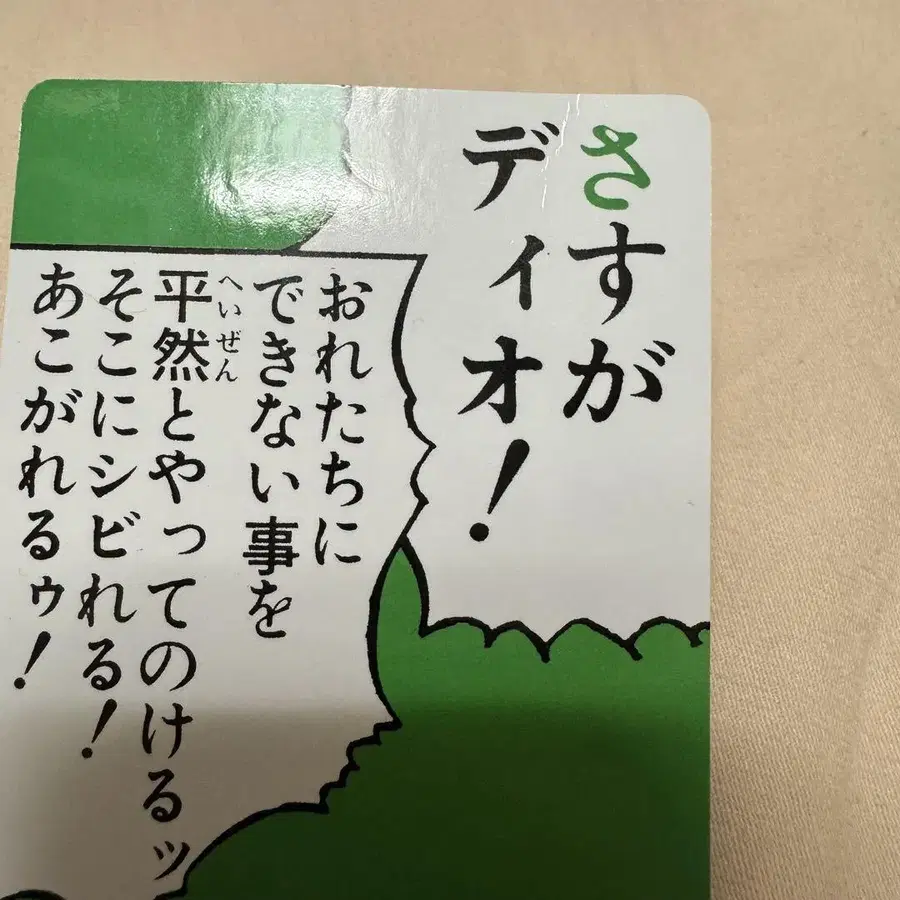 さすが
ディオ!
おれたちに
できない事を
平然とやってのけるッ
へいぜん
そこにシビれる!
あこがれるゥ!